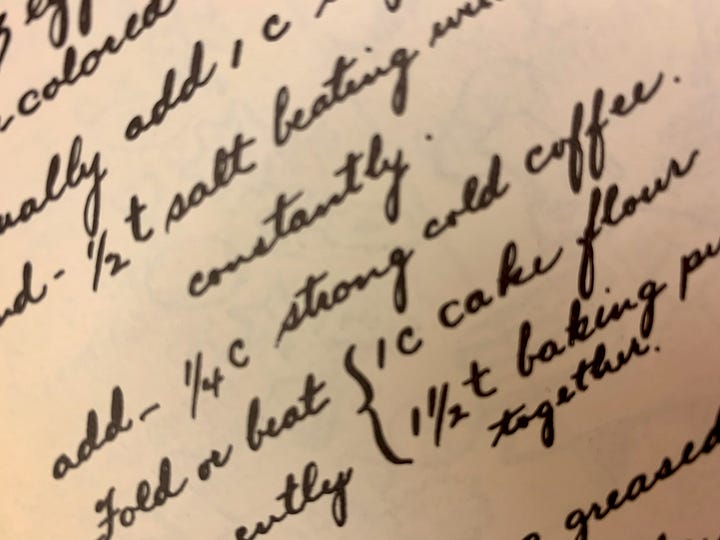 egg
-colored
ually add 1 c
nd - 1/2 t salt beating
constantly.
add - 1/4 c strong cold coffee.
Fold or beat { 1 c cake flour
ently 1 1/2 t baking
together.
greased